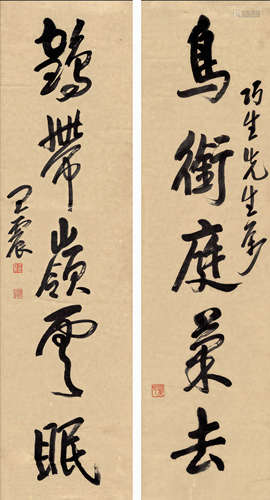 巧生先生
鳥銜庭菓去
鶴帶嶺雲眠
王震